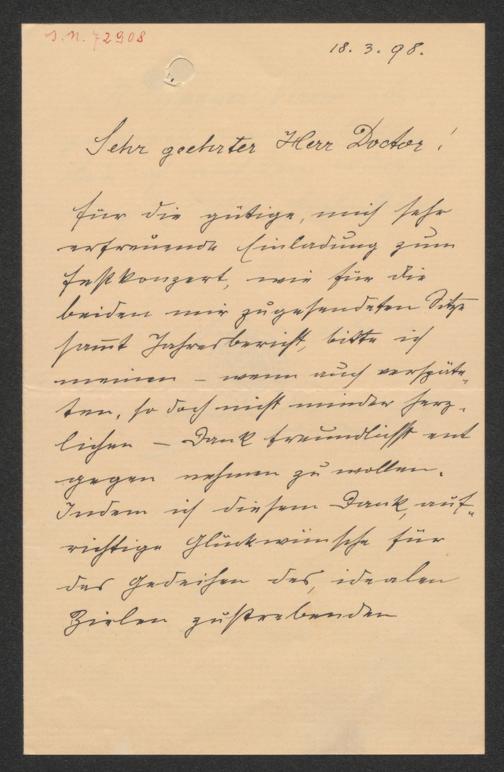 J.N. 72908
18. 3. 98.
Sehr geehrter Herr Doctor!
Für die gütige, mich sehr
erfreuende Einladung zum
Festkonzert, wie für die
beiden mir zugesendeten Sitze
sammt Jahresbericht, bitte ich
meinen – wenn auch verspäte-
ten, so doch nicht minder herz-
lichen – Dank freundlichst ent
gegen nehmen zu wollen.
Indem ich diesem Dank, auf-
richtige Glückwünsche für
das Gedeihen des, idealen
Zielen zustrebenden